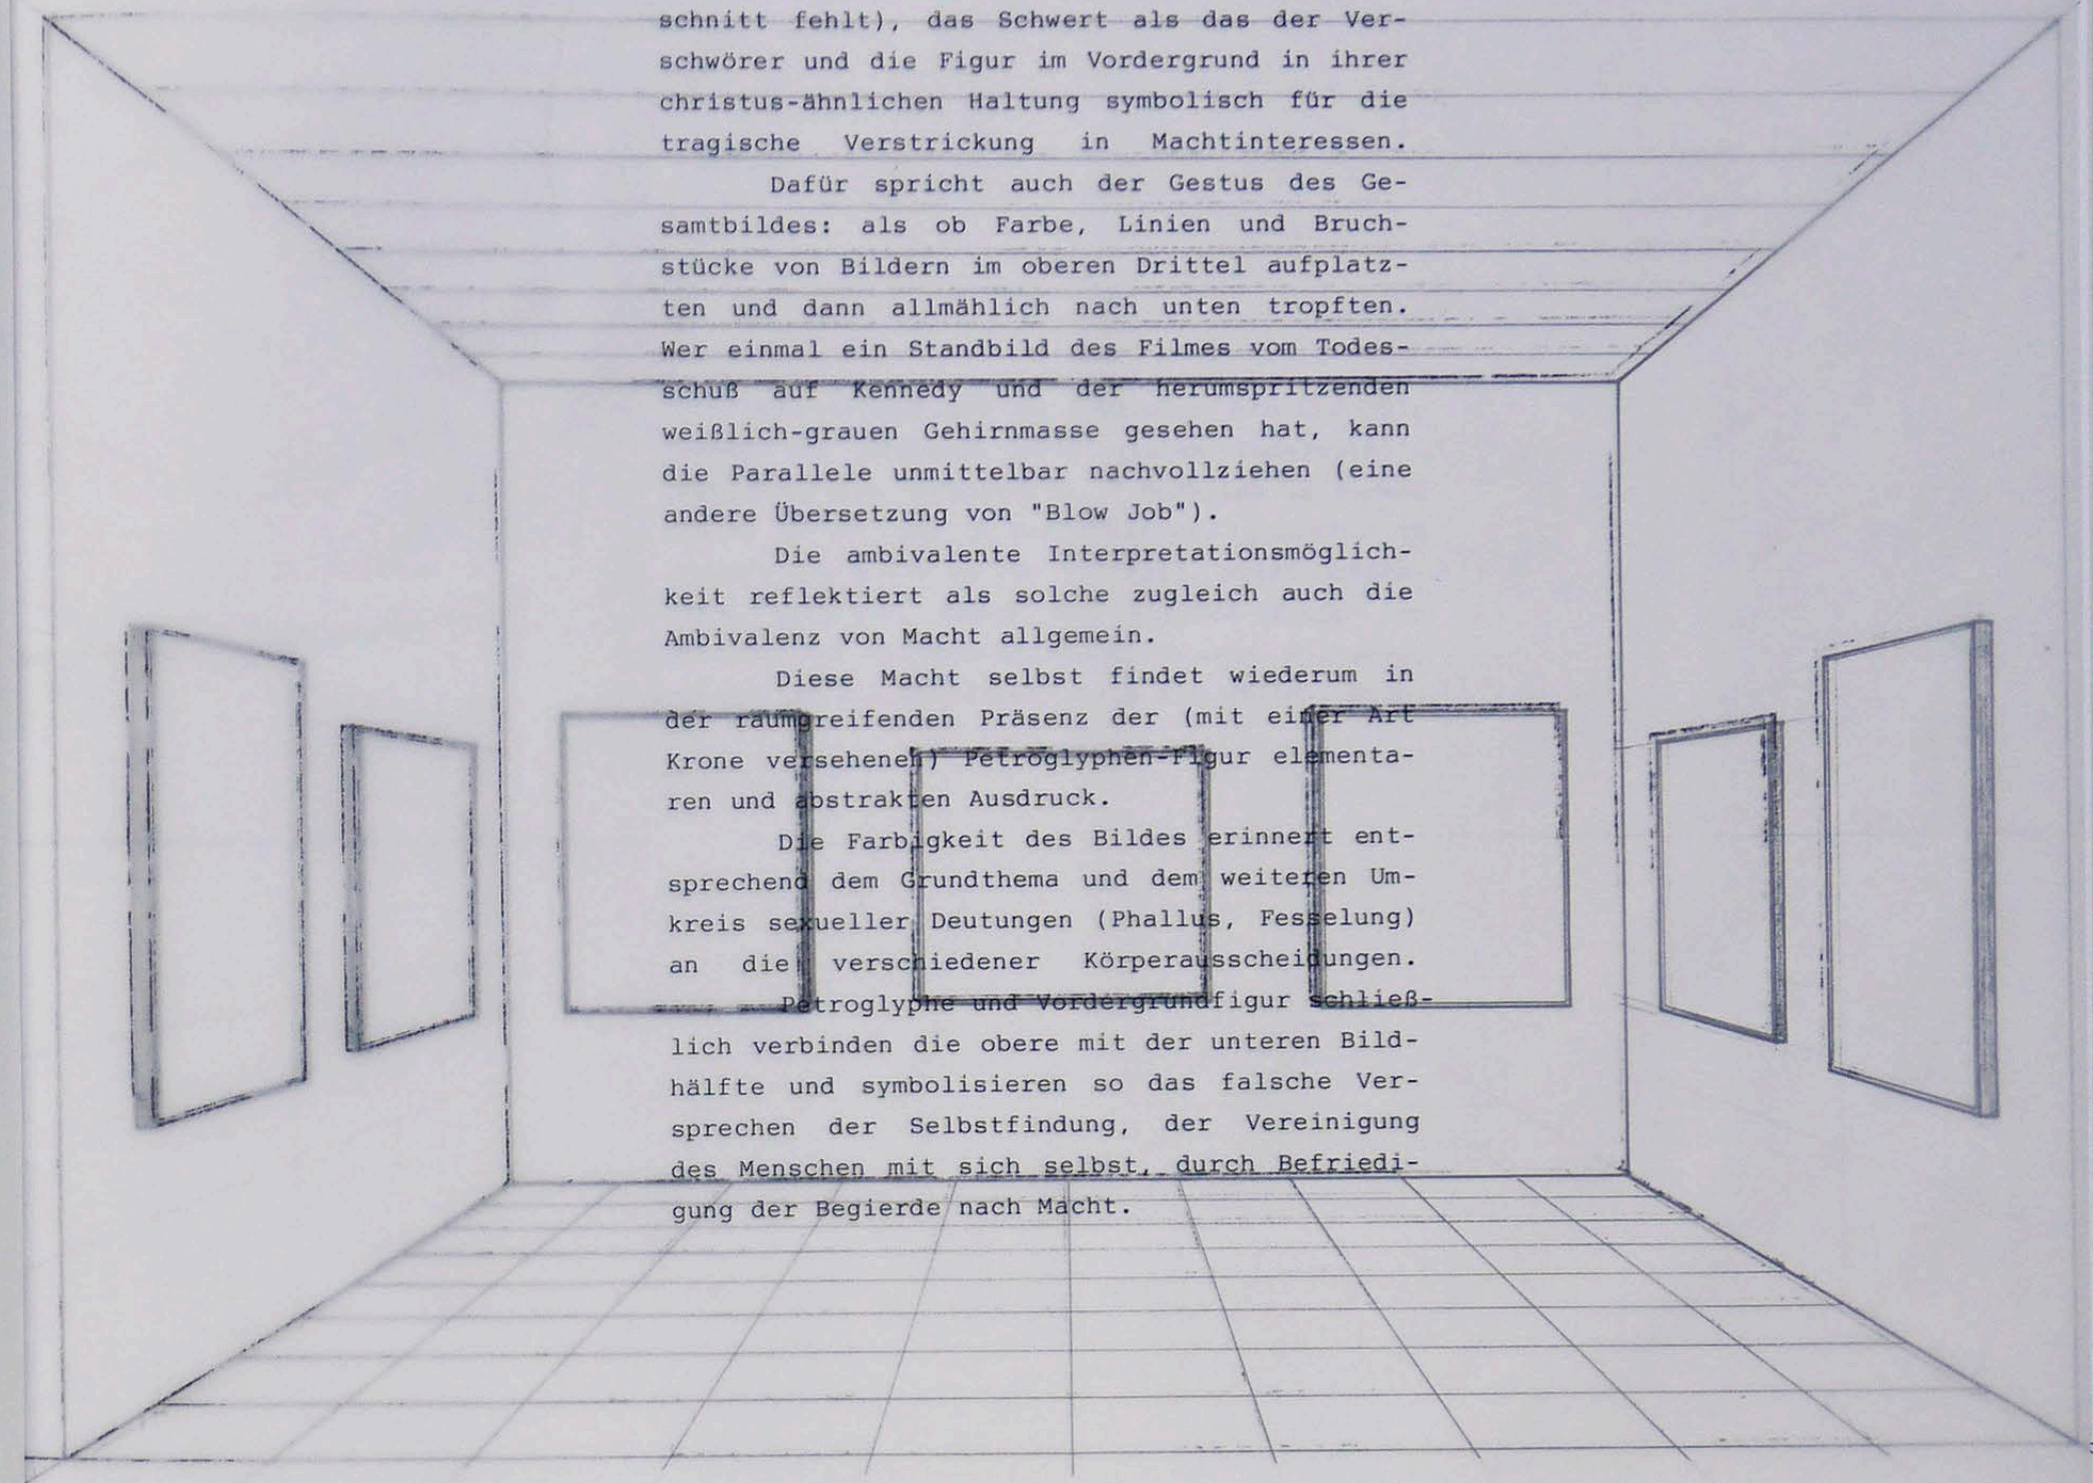 schnitt fehlt), das Schwert als das der Ver-
schwörer und die Figur im Vordergrund in ihrer
christus-ähnlichen Haltung symbolisch für die
tragische Verstrickung in Machtinteressen.
Dafür spricht auch der Gestus des Ge-
samtbildes: als ob Farbe, Linien und Bruch-
stücke von Bildern im oberen Drittel aufplatz-
ten und dann allmählich nach unten tropften.
Wer einmal ein Standbild des Filmes vom Todes-
schuß auf Kennedy und der herumspritzenden
weißlich-grauen Gehirnmasse gesehen hat, kann
die Parallele unmittelbar nachvollziehen (eine
andere Übersetzung von "Blow Job").
Die ambivalente Interpretationsmöglich-
keit reflektiert als solche zugleich auch die
Ambivalenz von Macht allgemein.
Diese Macht selbst findet wiederum in
der raumgreifenden Präsenz der (mit einer Art
Krone versehenen) Petroglyphen-Figur elementa-
ren und abstrakten Ausdruck.
Die Farbigkeit des Bildes erinnert ent-
sprechend dem Grundthema und dem weiteren Um-
kreis sexueller Deutungen (Phallus, Fesselung)
an die verschiedener Körperausscheidungen.
Petroglyphe und Vordergrundfigur schließ-
lich verbinden die obere mit der unteren Bild-
hälfte und symbolisieren so das falsche Ver-
sprechen der Selbstfindung, der Vereinigung
des Menschen mit sich selbst, durch Befriedi-
gung der Begierde nach Macht.